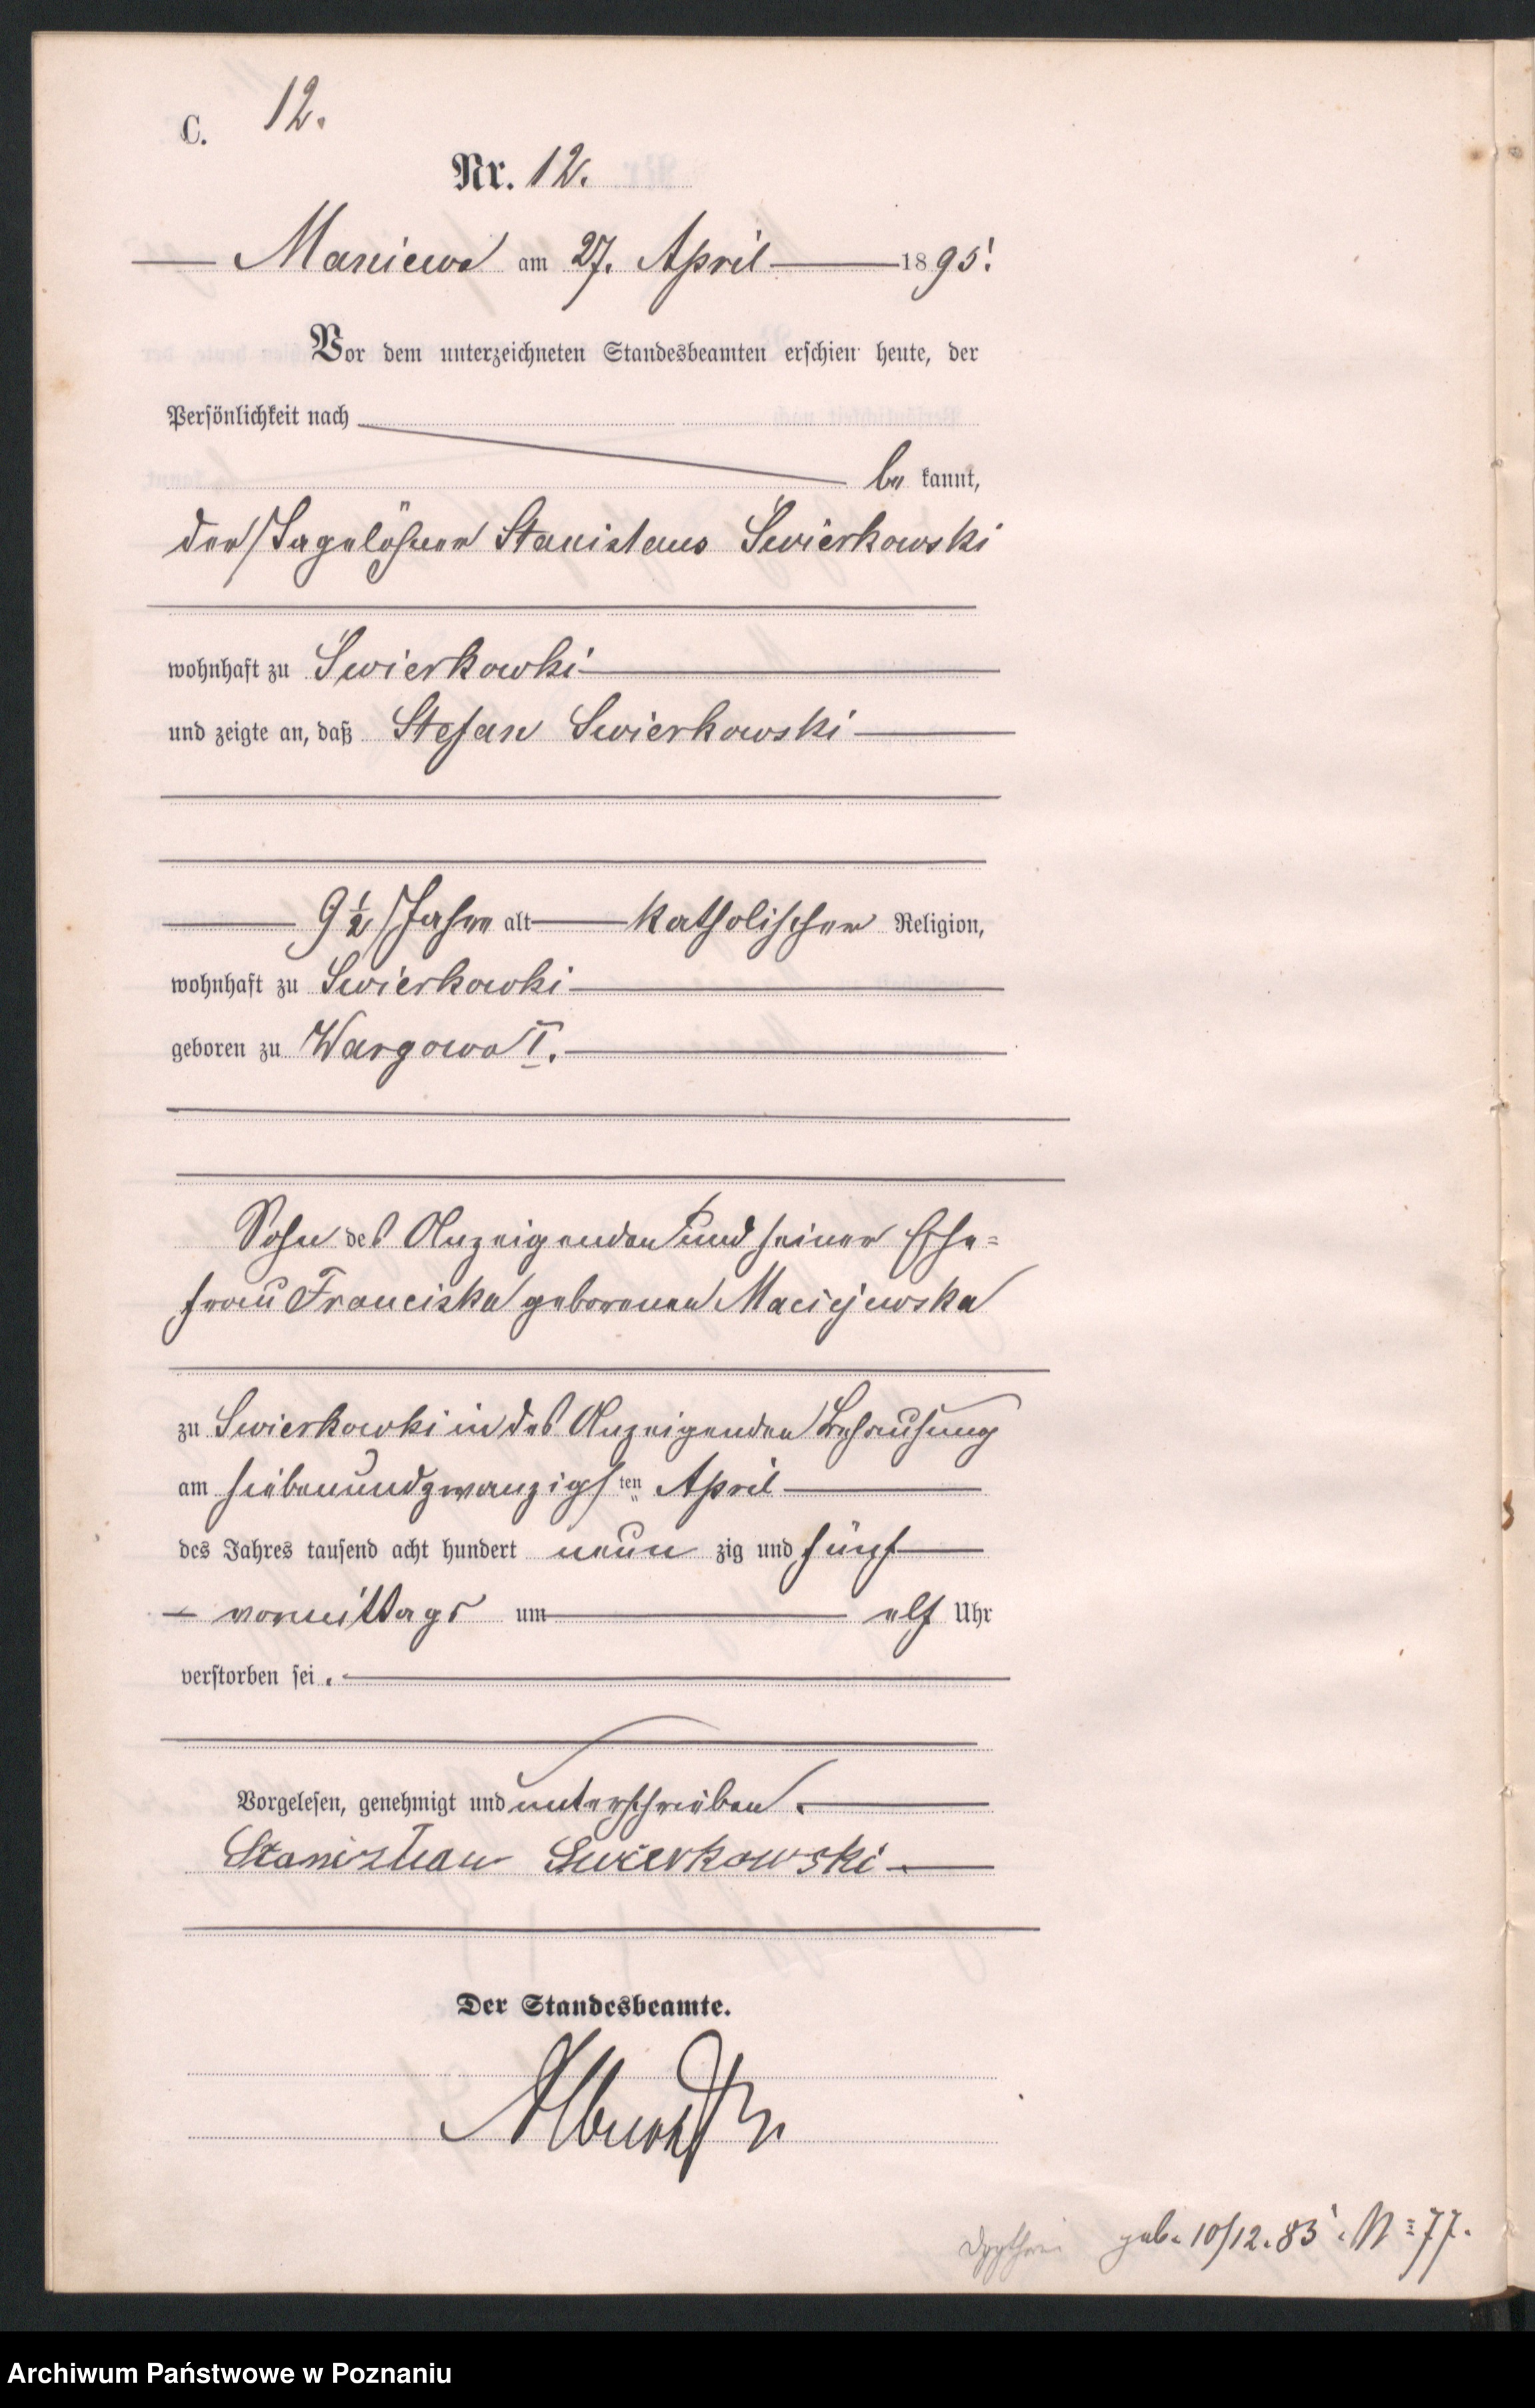 C. 12.
Nr. 12.
Maniewo am 27. April 1895.
Vor dem unterzeichneten Standesbeamten erschien heute, der
Persönlichkeit nach
bekannt,
der Tagelöhner Stanislaus Świerkowski
wohnhaft zu Świerkowki
und zeigte an, daß Stefan Swierkowski
9 1/2 Jahre alt katholischer Religion,
wohnhaft zu Swierkowki
geboren zu Wargowo I.
Sohn des Anzeigenden und seiner Ehe=
frau Franciska geborenen Maciejewska
zu Swierkowki in des Anzeigenden Behausung
am siebenundzwanzigsten April
des Jahres tausend acht hundert neunzig und fünf
vormittags um elf Uhr
verstorben sei.
Vorgelesen, genehmigt und unterschrieben.
Stanislau Swierkowski
Der Standesbeamte.
geb. 10/12. 85. N= 77.
Archiwum Państwowe w Poznaniu